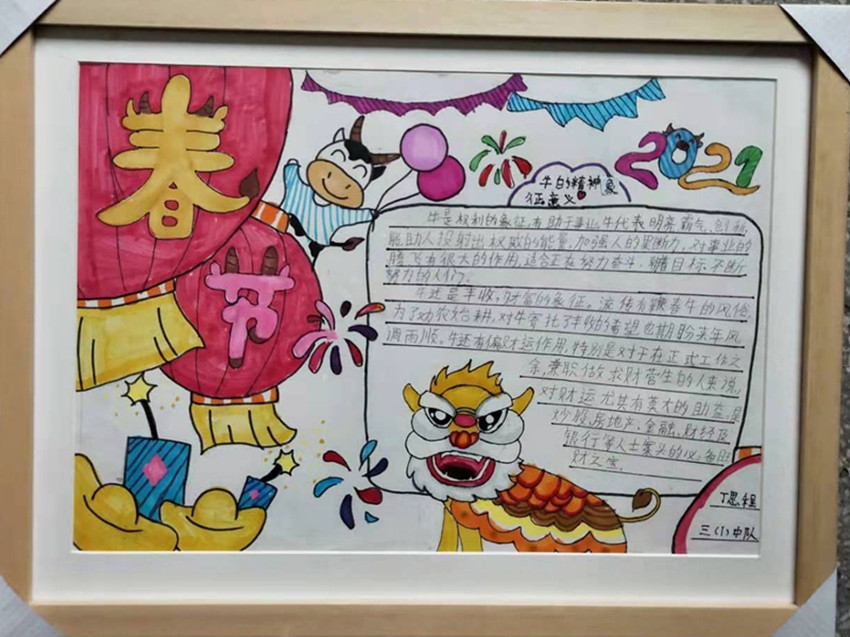 春
节
2021
牛的精神象
征意义
牛是权利的象征,有助于事业,牛代表明亮霸气、创新,
能助人投射出权威的能量,加强人的果断力,对事业的
腾飞有很大的作用,适合正在努力奋斗,瞄着目标,不断
努力的人们。
牛还是丰收,财富的象征。流传有鞭春牛的风俗,
为了劝农始耕,对牛寄托了丰收的希望也期盼来年风
调雨顺。牛还有偏财运作用,特别是对于在正式工作之
余,兼职做求财营生的人来说,
对财运尤其有莫大的助益,是
炒股、房地产、金融、财经及
银行等人士案头的必备旺
财之宝。
丁思程
三(1)中队